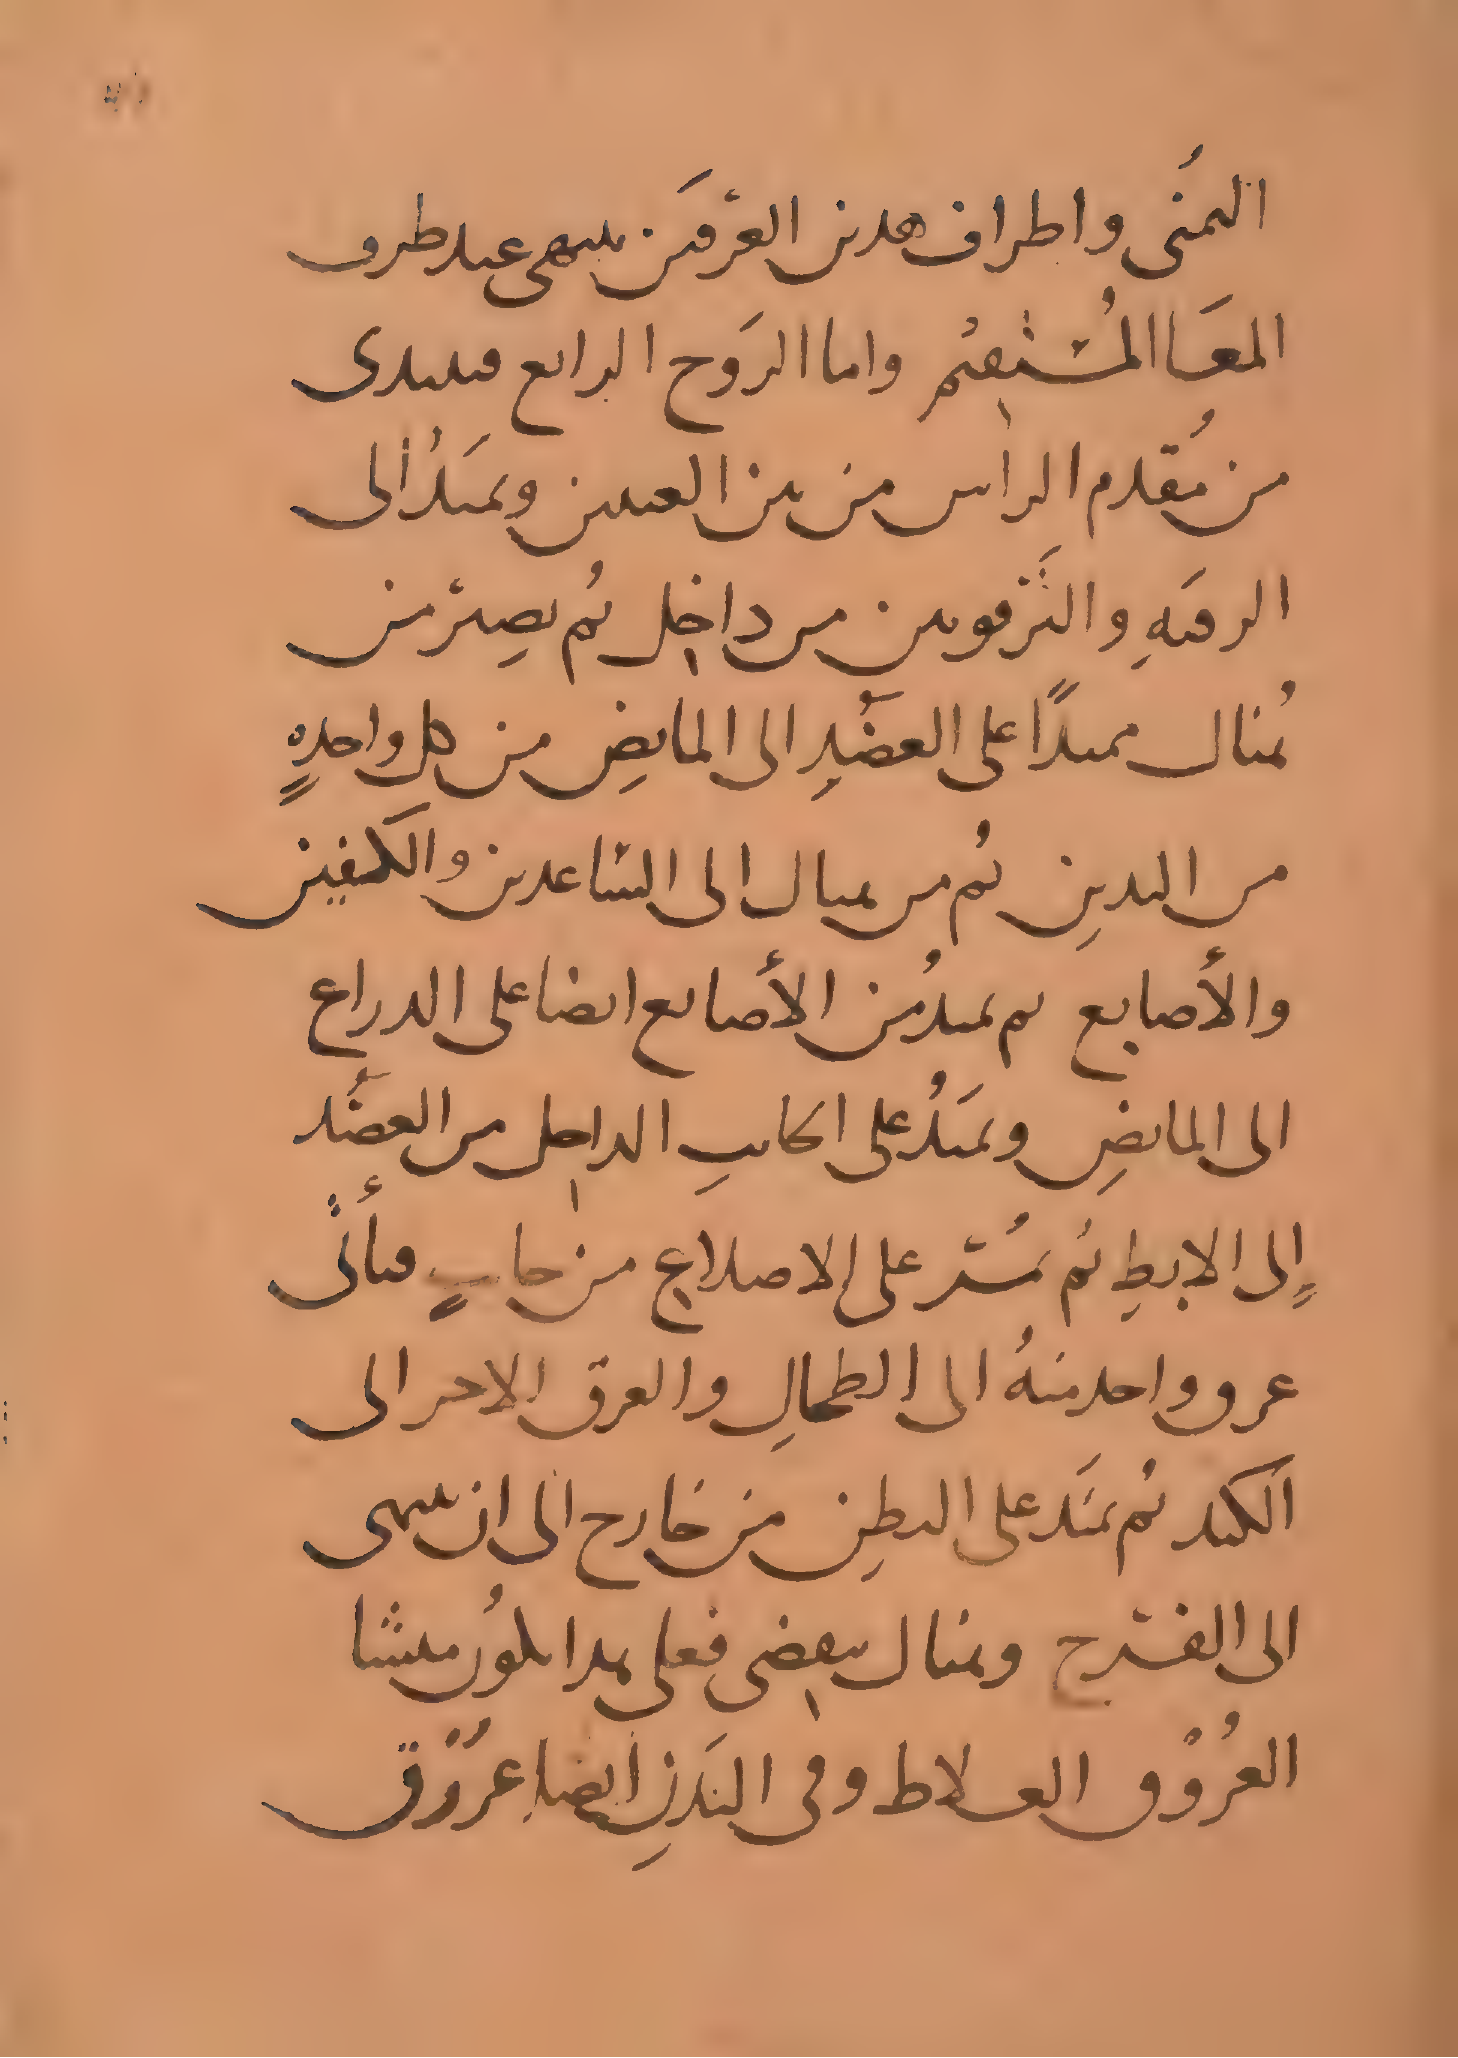 اليمنى واطراف هذين العرقين ينتهى عند طرف
المعا المستقيم واما الزوج الرابع فيبتدى
من مقدم الراس من بين العينين ويمتد الى
الرقبه والترقوتين من داخل ثم يصير من
ثمال ممتدا على العضد الى المابض من كل واحده
من اليدين ثم من ثمال الى الساعدين والكفين
والأصابع ثم يمتد من الأصابع ايضا على الذراع
الى المابض ويمتد على الجانب الداخل من العضد
إلى الابط ثم يمر على الاضلاع من جانب فيأتى
عرق واحد منه الى الطحال والعرق الاخر الى
الكبد ثم يمتد على البطن من خارج الى ان ينتهى
الى الفرج وثمال ينقضى فعلى هذا يكون منشا
العروق الغلاظ وفى البدن ايضا عروق